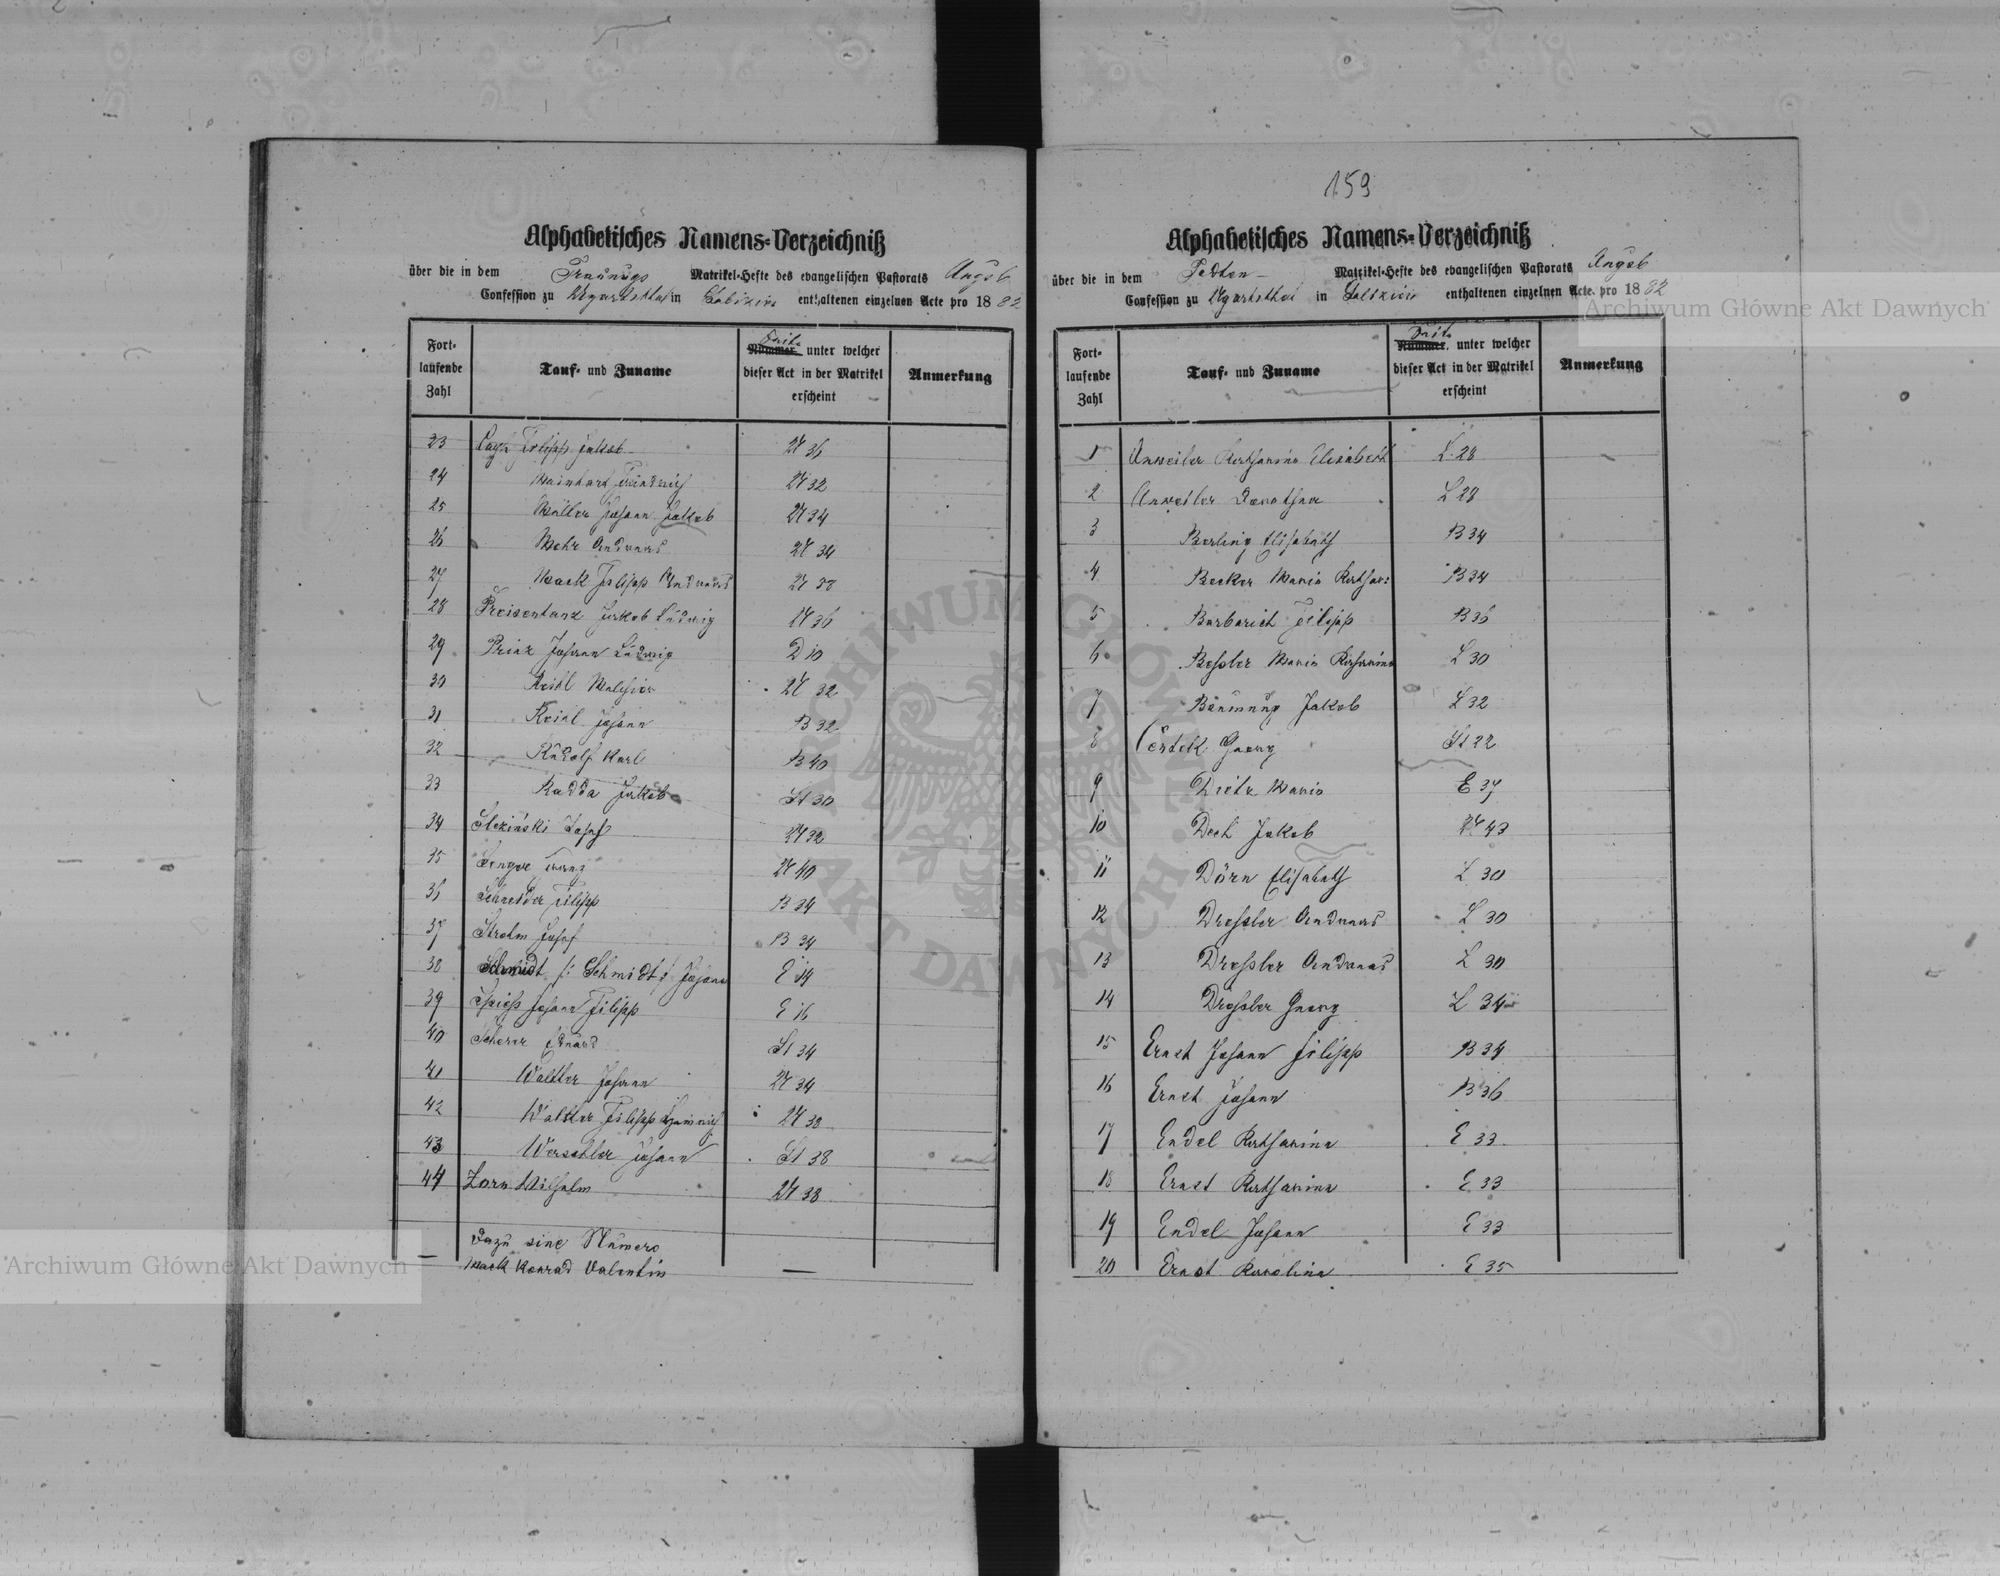 Alphabetisches Namens-Verzeichniß
über die in dem Trauungs Matrikel-Hefte des evangelischen Pastorats Augsb
Confession zu Ugartsthal in Galizien enthaltenen einzelnen Acte pro 1882
Fort-
laufende
Zahl
Tauf- und Zuname
Seite
Nummer unter welcher
dieser Act in der Matrikel
erscheint
Anmerkung
23 Filipp Jakob U 36
24 Meinhart Friedrich U 32
25 Müller Johann Jakob U 34
26 Mohr Andreas U 34
27 Mack Filipp Andreas U 38
28 Preisentanz Jakob Ludwig U 36
29 Prinz Johann Ludwig D 10
30 Reibl Melchior U 32
31 Johann B 32
32 Rudolf Karl B 40
33 Radda Jakob St 30
34 Sleziński Josef U 32
35 Franz U 40
36 Schneider Filipp B 34
37 Strohm Josef B 34
38 Schmidt /: Schmidt :/ Johann E 14
39 Spieß Johann Filipp E 16
40 Scherer Eduard St 34
41 Walther Johann U 34
42 Walther Filipp Heinrich U 38
43 Werschler Johann St 38
44 Zorn Wilhelm U 38
Dazu eine Numero
— Mack Konrad Valentin —
159
Alphabetisches Namens-Verzeichniß
über die in dem Todten- Matrikel-Hefte des evangelischen Pastorats Augsb
Confession zu Ugartsthal in Galizien enthaltenen einzelnen Acte pro 1882
Fort-
laufende
Zahl
Tauf- und Zuname
Seite
Nummer unter welcher
dieser Act in der Matrikel
erscheint
Anmerkung
1 Anweiler Katharina Elisabeth L 28
2 Anweiler Dorothea L 28
3 Berling Elisabeth B 34
4 Becker Maria Kathar: B 34
5 Barbarich Filipp B 36
6 Beßler Maria Katharina L 30
7 Bäumung Jakob L 32
8 Čestek Georg St 22
9 Dietz Maria E 37
10 Dech Jakob U 43
11 Dörn Elisabeth L 30
12 Dreßler Andreas L 30
13 Dreßler Andreas L 30
14 Dreßler Georg L 34
15 Ernst Johann Filipp B 34
16 Ernst Johann B 36
17 Endel Katharina E 33
18 Ernst Katharina E 33
19 Endel Johann E 33
20 Ernst Karolina E 35
Archiwum Główne Akt Dawnych
Archiwum Główne Akt Dawnych
ARCHIWUM GŁÓWNE AKT DAWNYCH